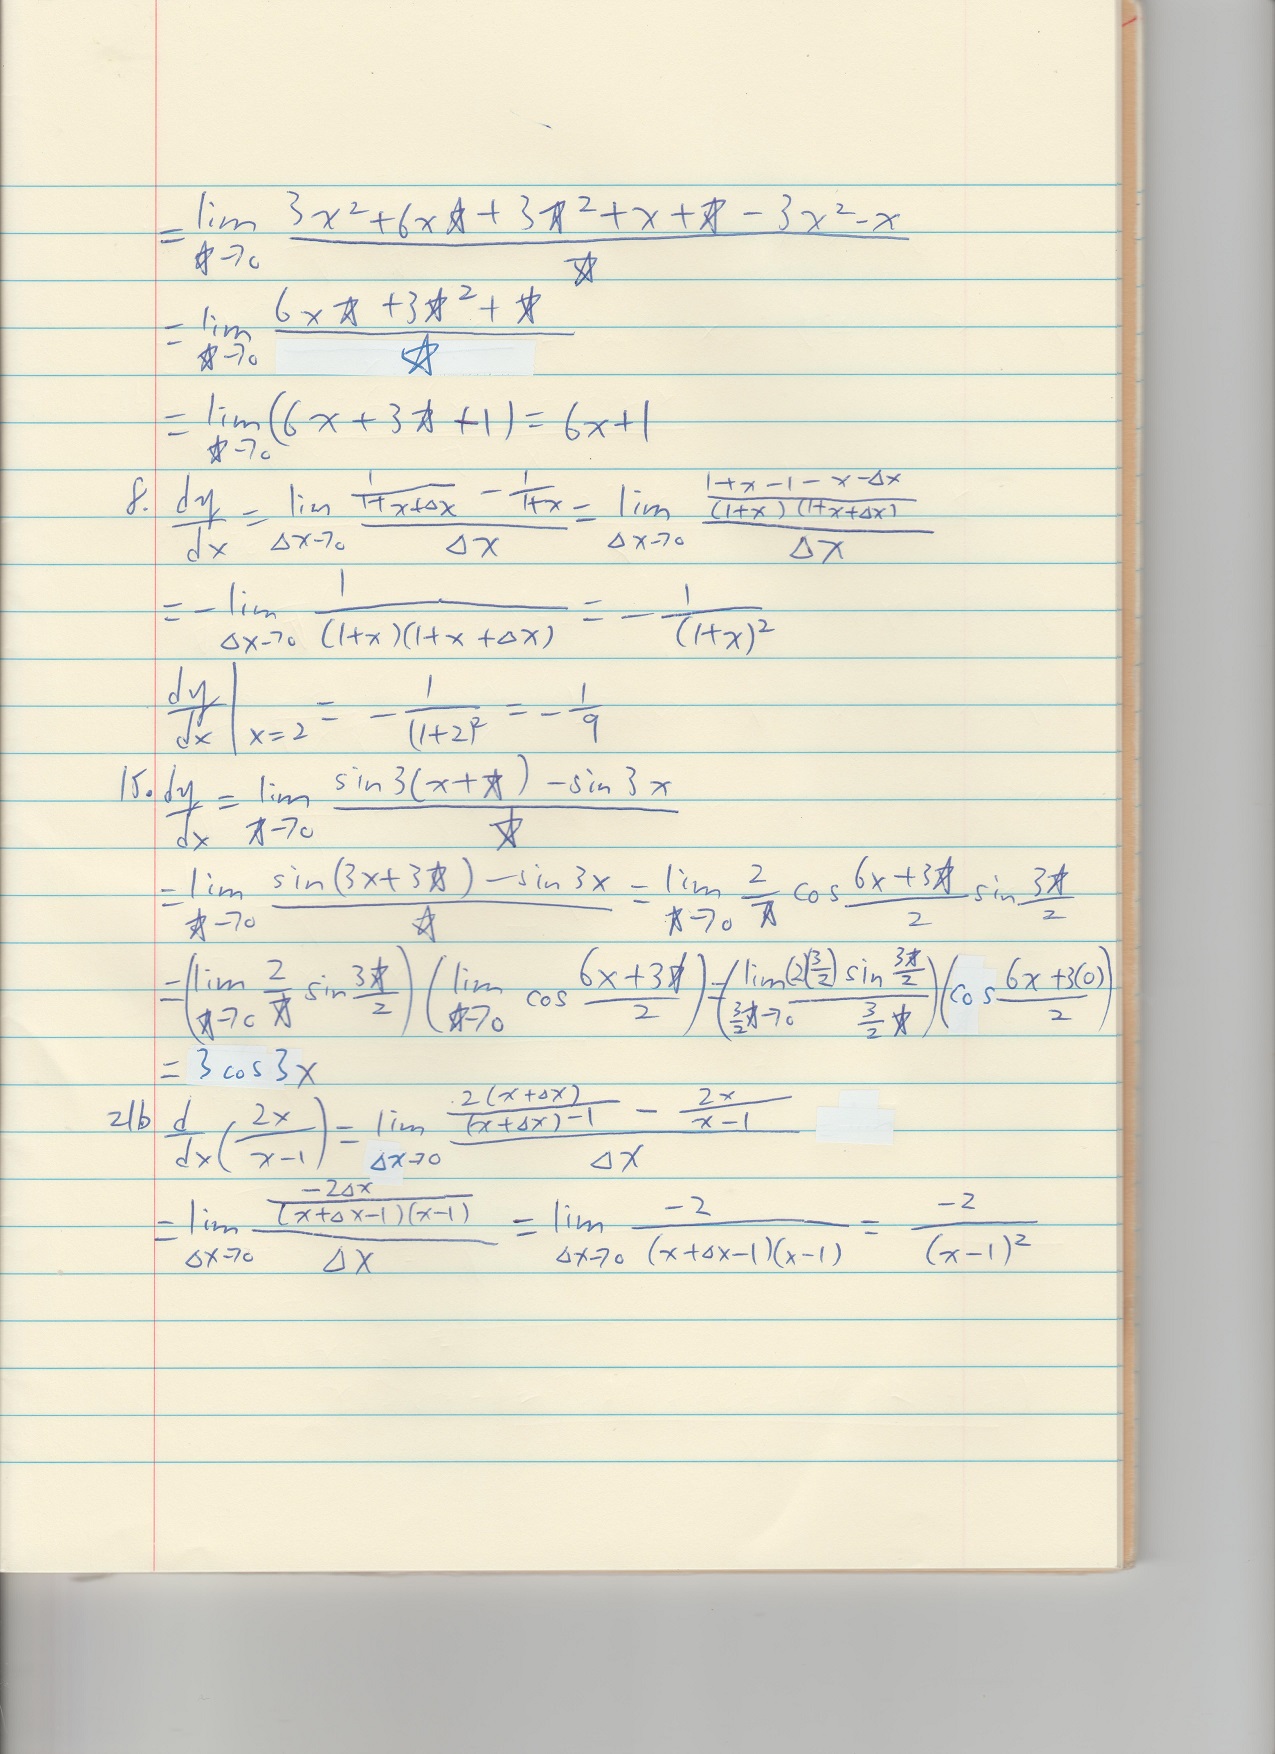 = lim_{☆→0} (3x²+6x☆+3☆²+x+☆-3x²-x)/☆
= lim_{☆→0} (6x☆+3☆²+☆)/☆
= lim_{☆→0} (6x+3☆+1) = 6x+1
8. dy/dx = lim_{Δx→0} (1/(1+x+Δx) - 1/(1+x))/Δx = lim_{Δx→0} ((1+x-1-x-Δx)/((1+x)(1+x+Δx)))/Δx
= -lim_{Δx→0} 1/((1+x)(1+x+Δx)) = -1/(1+x)²
dy/dx|_{x=2} = -1/(1+2)² = -1/9
15. dy/dx = lim_{☆→0} (sin3(x+☆)-sin3x)/☆
= lim_{☆→0} (sin(3x+3☆)-sin3x)/☆ = lim_{☆→0} 2/☆ cos (6x+3☆)/2 sin 3☆/2
= (lim_{☆→0} 2/☆ sin 3☆/2)(lim_{☆→0} cos (6x+3☆)/2) = (lim_{3/2☆→0} ((2)(3/2) sin 3☆/2)/(3/2 ☆))(cos (6x+3(0))/2)
= 3cos3x
21b d/dx(2x/(x-1)) = lim_{Δx→0} (2(x+Δx)/((x+Δx)-1) - 2x/(x-1))/Δx
= lim_{Δx→0} (-2Δx/((x+Δx-1)(x-1)))/Δx = lim_{Δx→0} -2/((x+Δx-1)(x-1)) = -2/(x-1)²